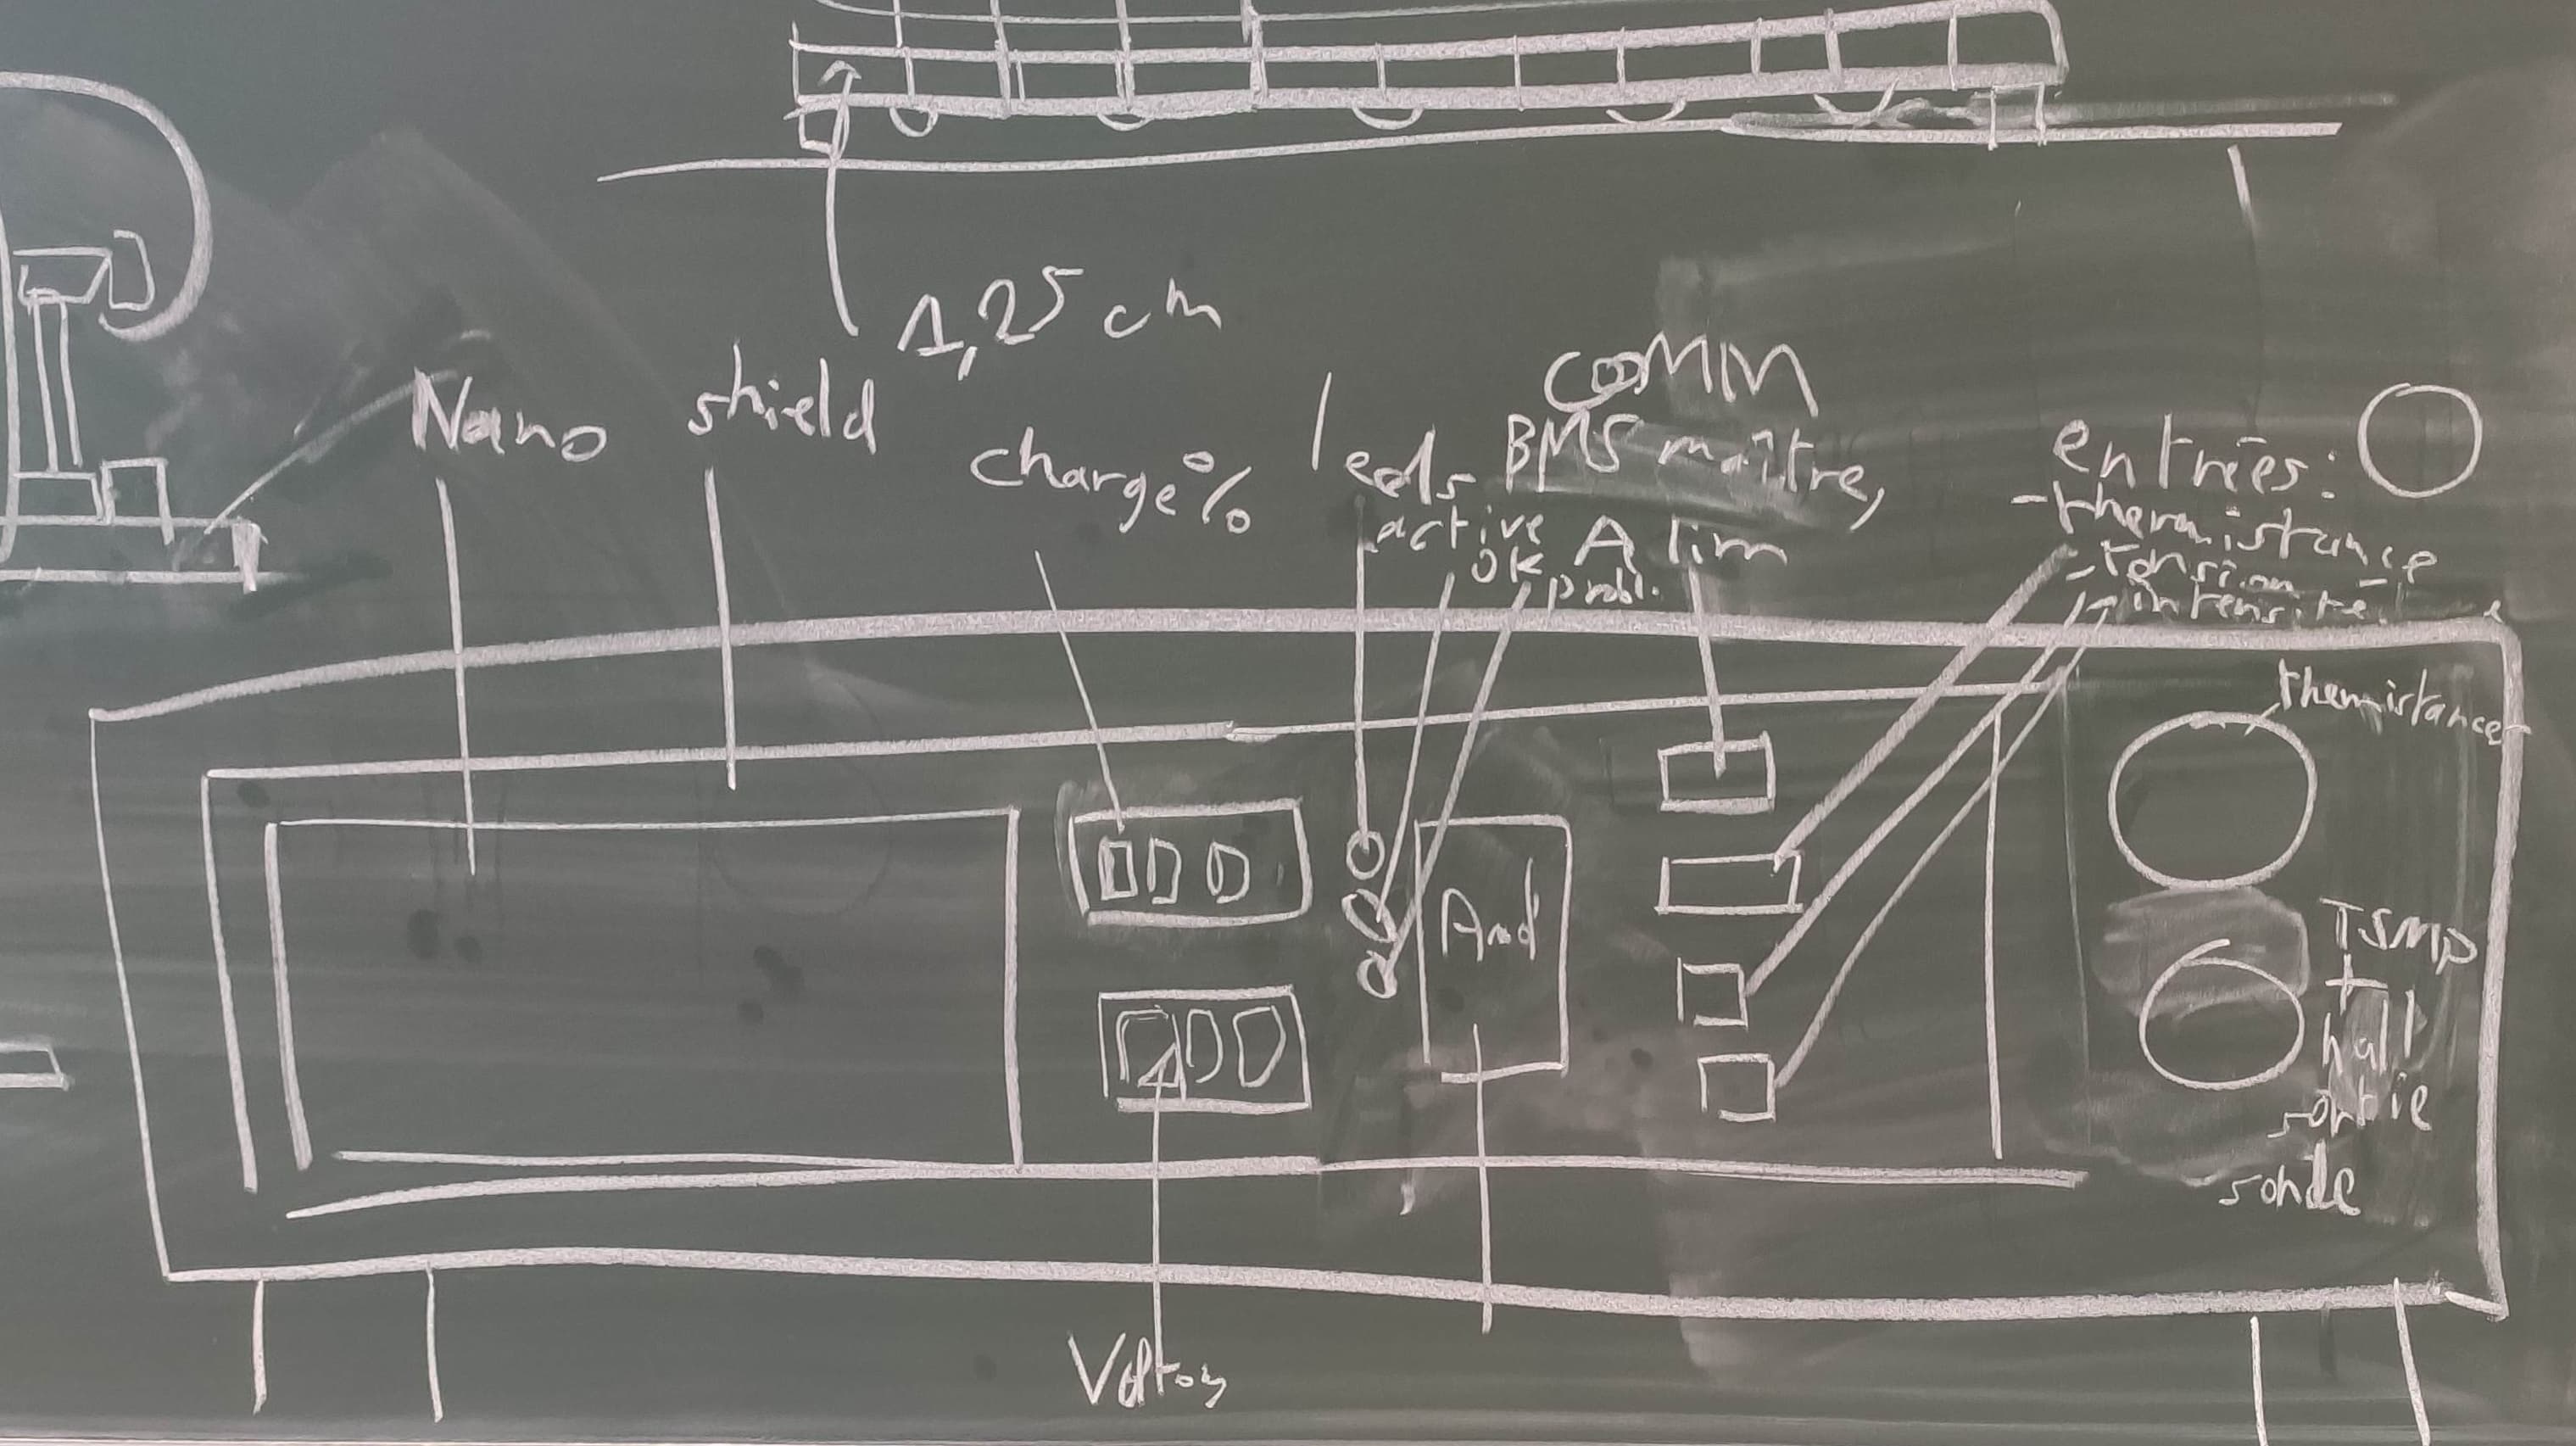 1,25 cm
Nano
shield
charge %
leds
active
ok
probl.
COMM
BMS maître,
Alim
entrées:
- thermistance
- tension
- intensité
thermistance
TSMP
+
hall
sortie
sonde